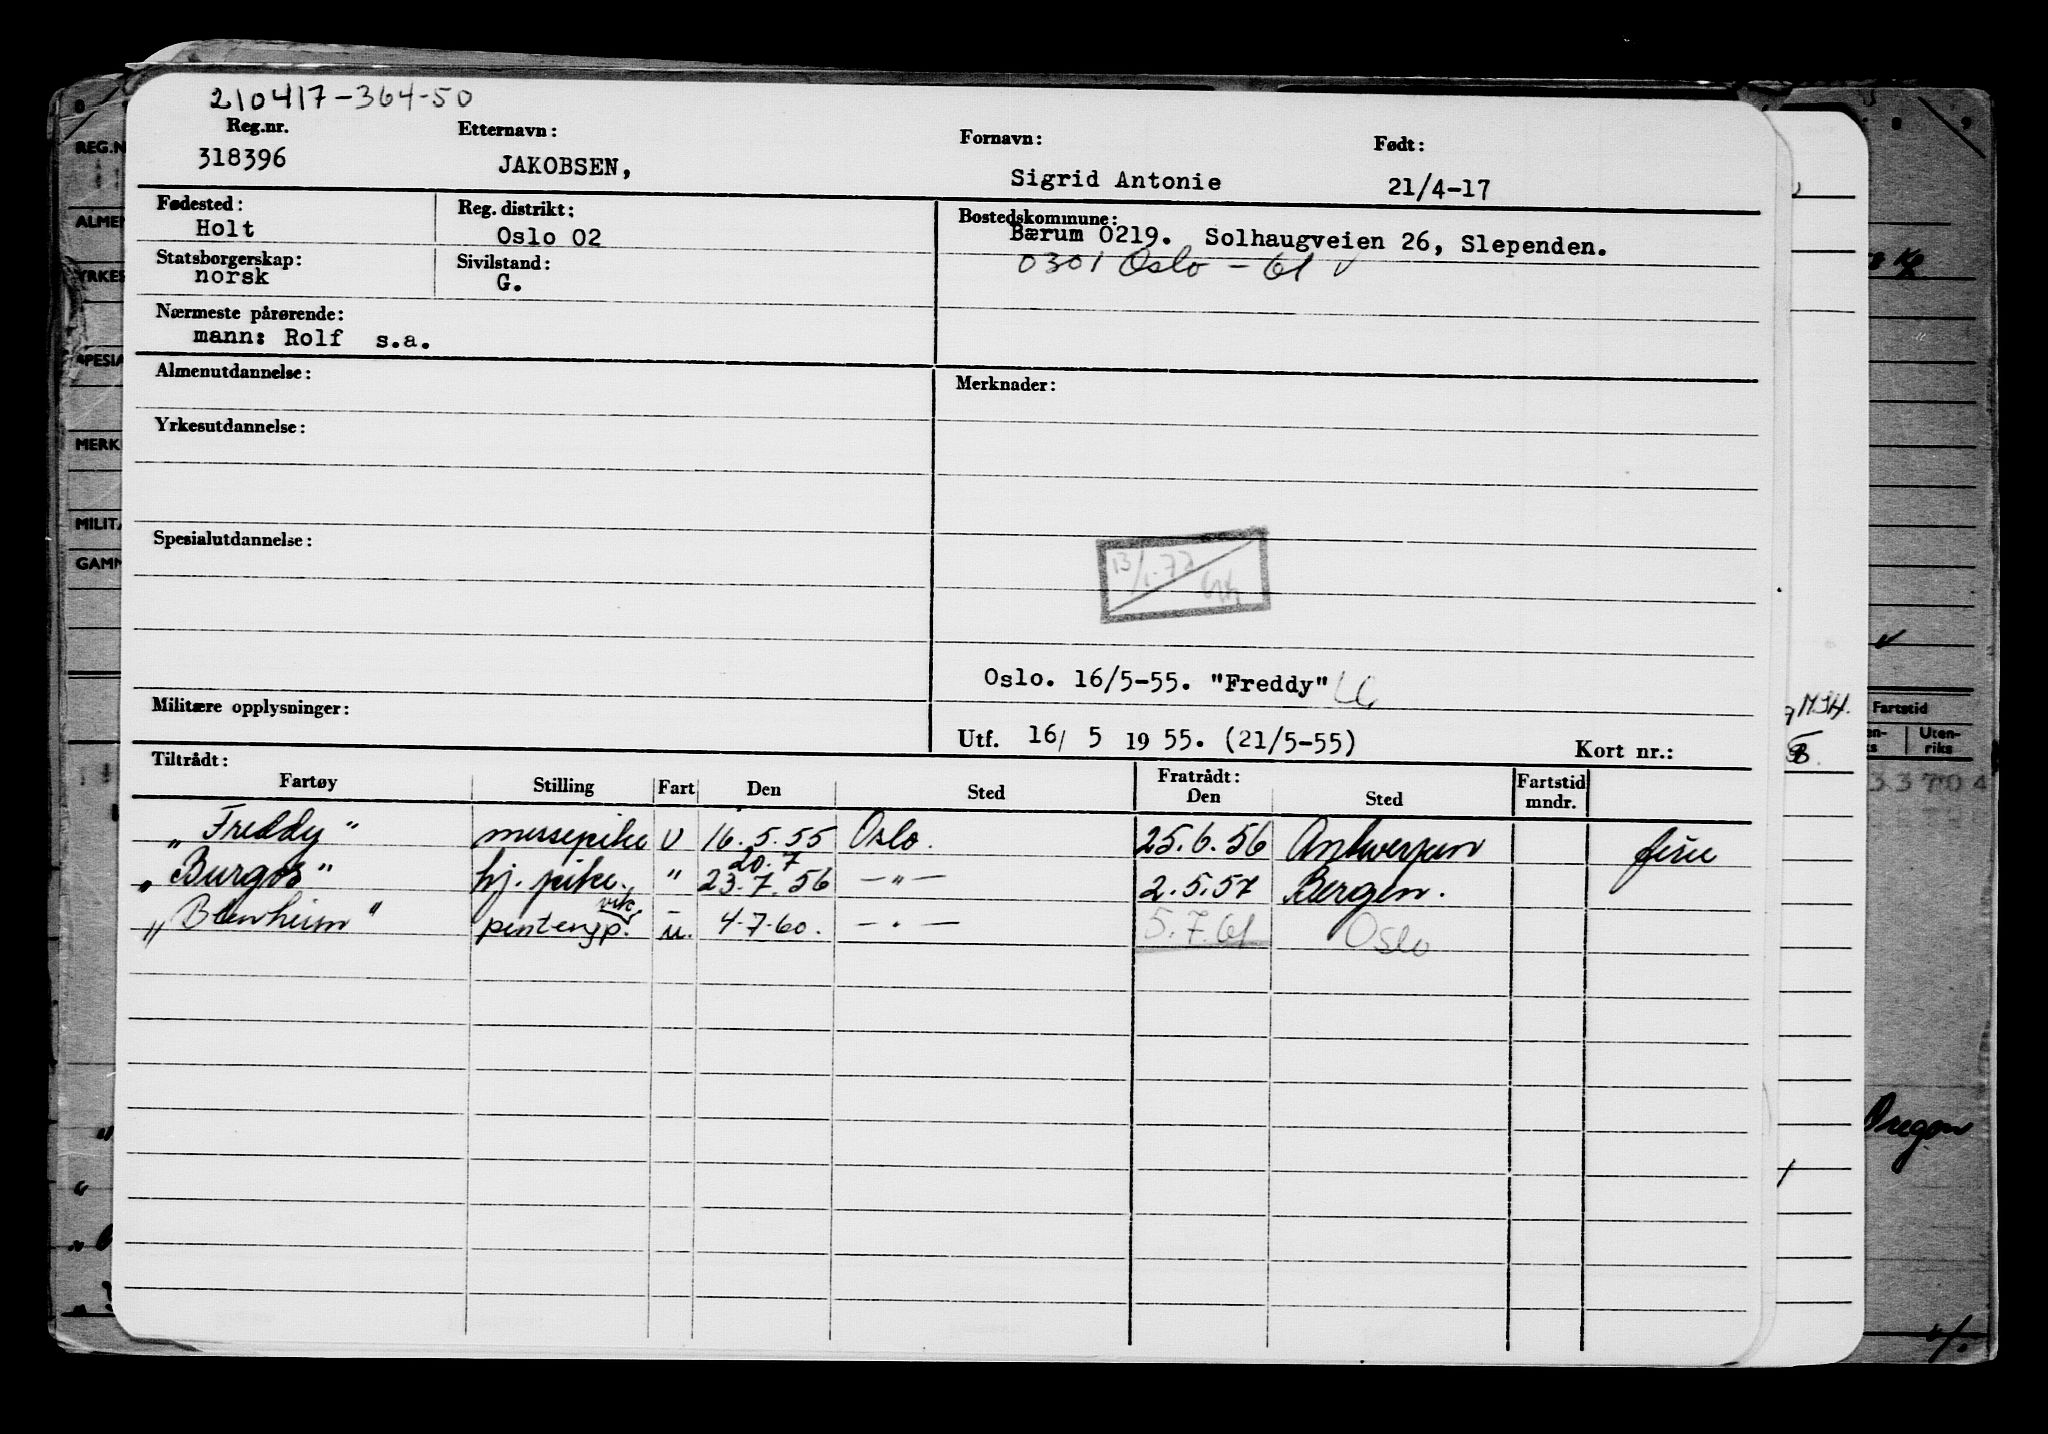 210417-364-50
Reg.nr. Etternavn: Fornavn: Født:
318396 JAKOBSEN, Sigrid Antonie 21/4-17
Fødested: Reg. distrikt: Bostedskommune:
Holt Oslo 02 Bærum 0219. Solhaugveien 26, Slependen.
Statsborgerskap: Sivilstand: 0301 Oslo - 61 v
norsk G.
Nærmeste pårørende:
mann: Rolf s.a.
Almenutdannelse: Merknader:
Yrkesutdannelse:
Spesialutdannelse:
13/1-72
Oslo. 16/5-55. "Freddy"
Militære opplysninger:
Utf. 16/ 5 1955. (21/5-55) Kort nr.:
Tiltrådt: Fratrådt: Fartstid
Fartøy Stilling Fart Den Sted Den Sted mndr.
"Freddy" messepike U 16.5.55 Oslo. 25.6.56 Antwerpen ferie
20.7
"Burgos" hj. pike. " 23.7.56 -"- 2.5.57 Bergen.
vik.
"Blenheim" pentryp. u. 4-7-60. -"- 5.7.61 Oslo
REG.N
ALMEN
YRKES
SPESIA
MERK
MILITÆ
GAMM
8 9
Fartstid
Uten-
riks
33704
Oregon